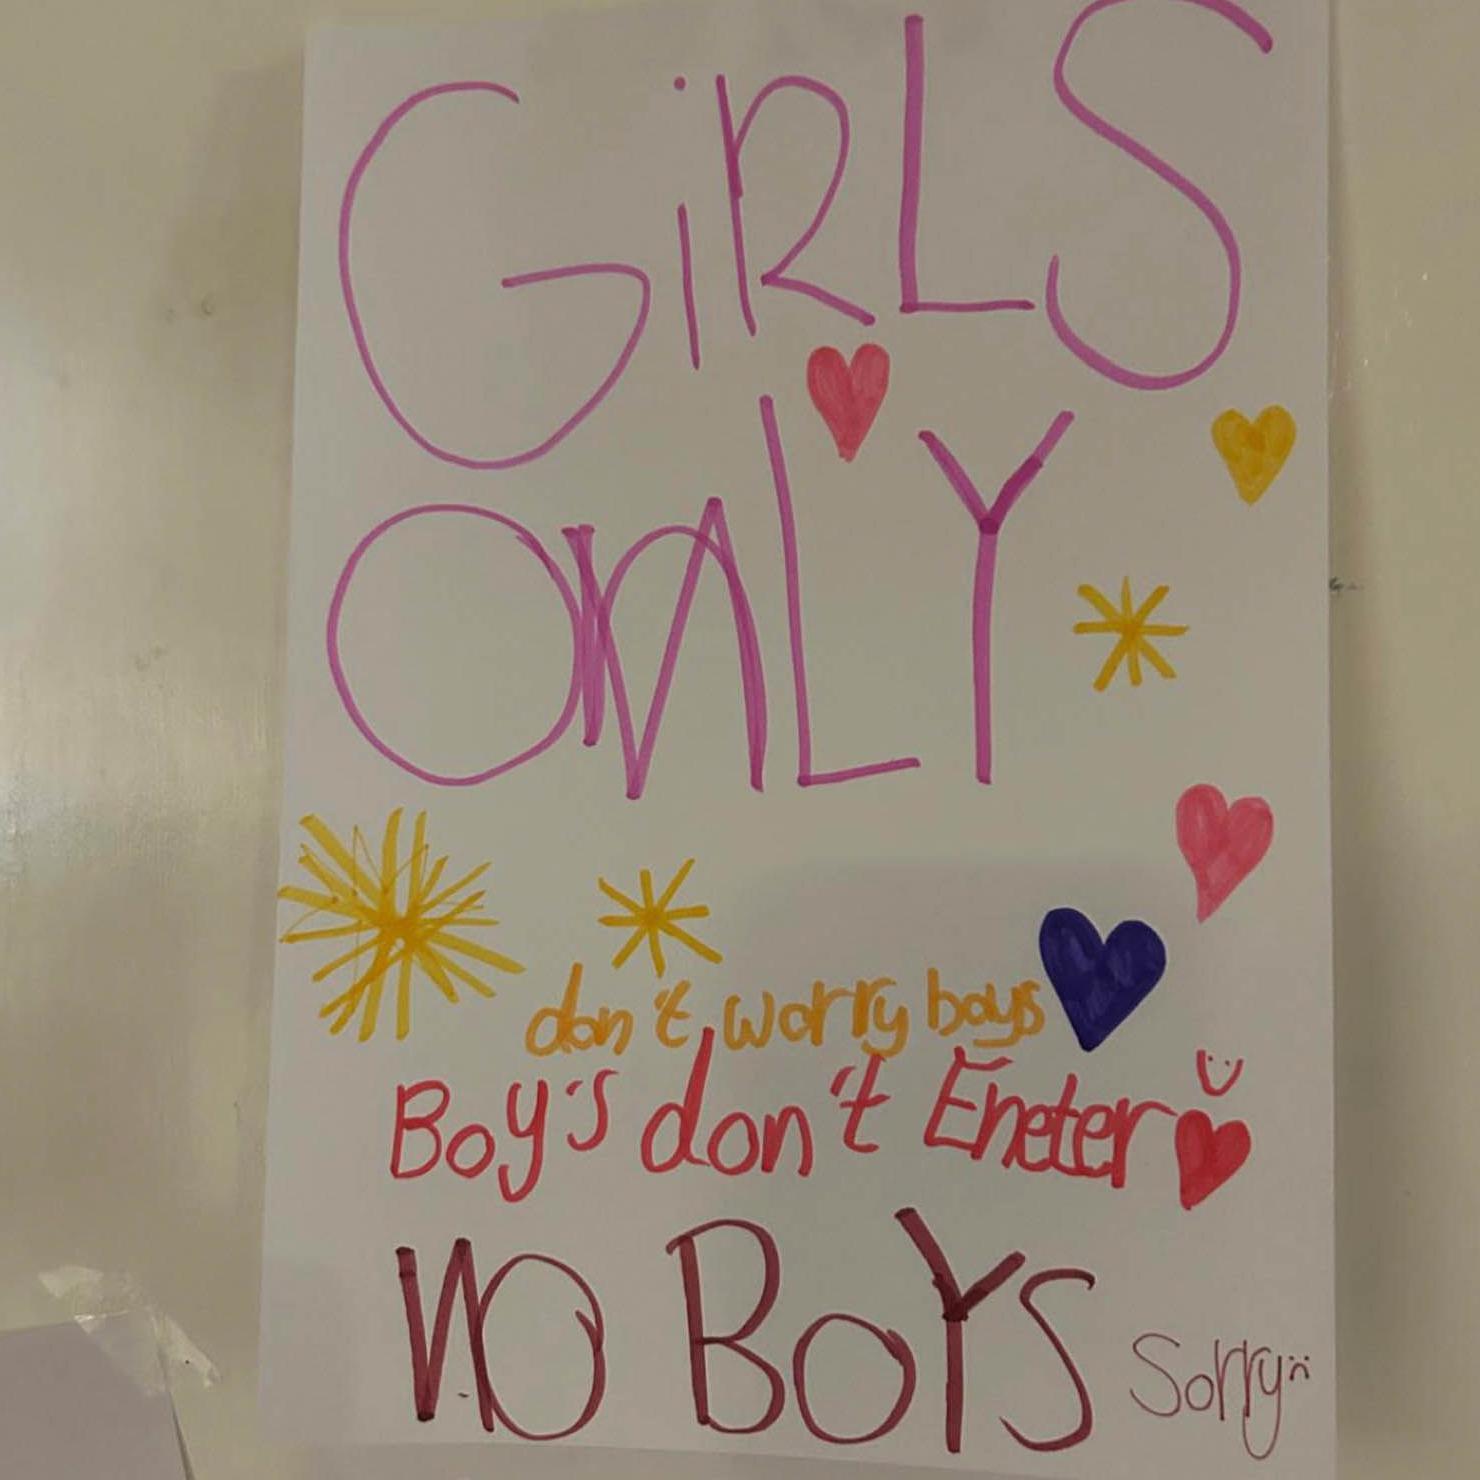 GiRLS
ONLY
don't worry boys
Boy's don't Eneter
NO BoYS Sorry:(